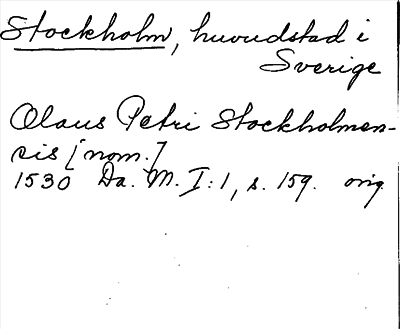 Stockholm, huvudstad i
Sverige
Olaus Petri Stockholmen-
sis [nom.]
1530 Da. M. I:1, s. 159. orig